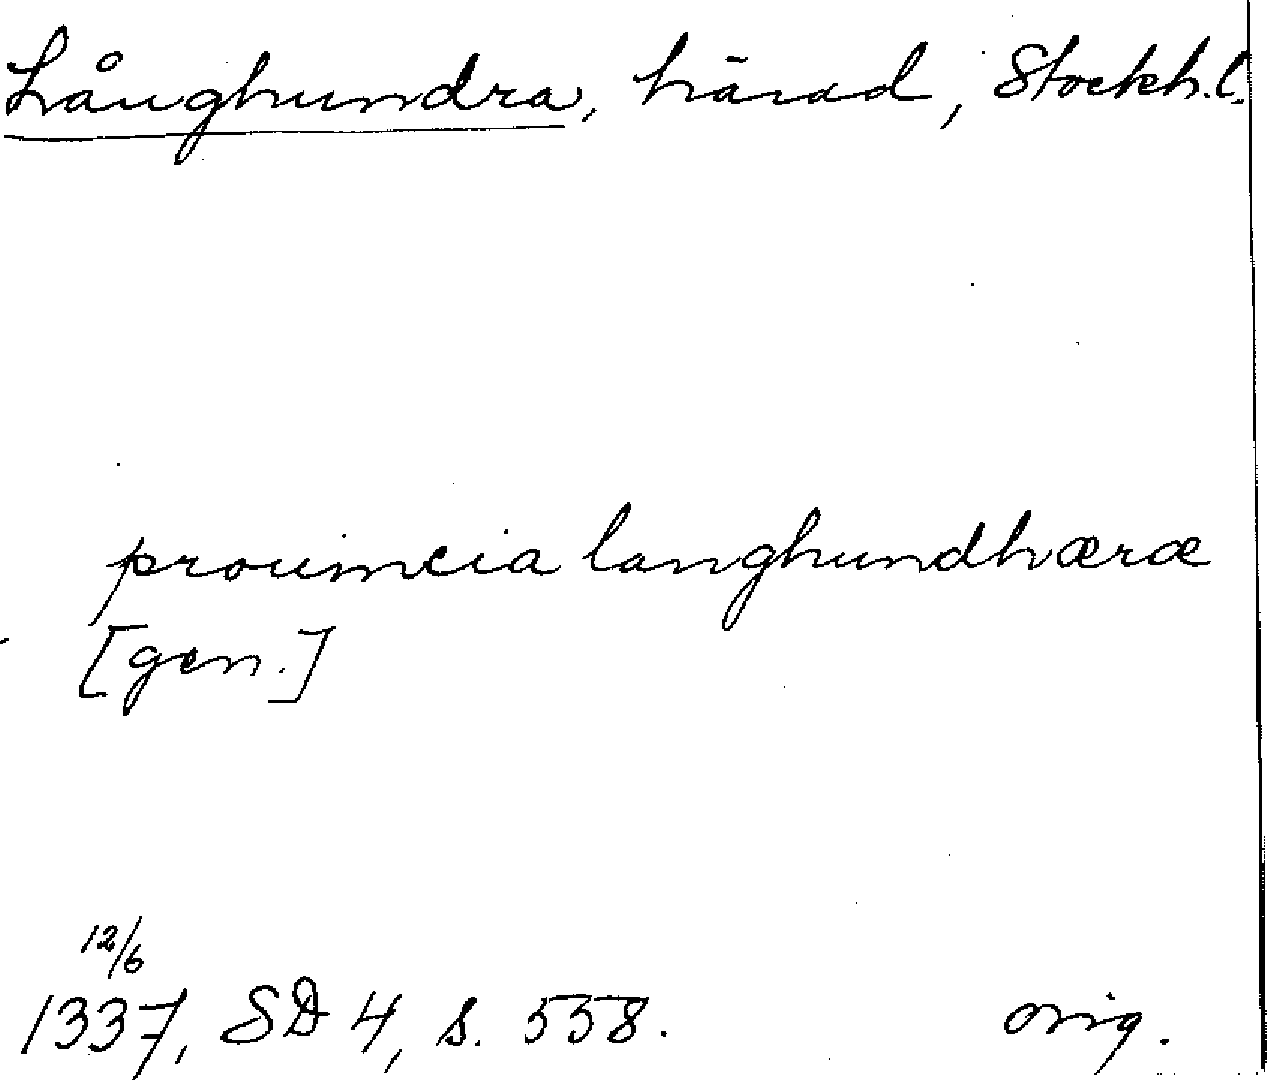 Långhundra, härad, Stockh.l.
prouincia langhundhæræ
[gen.]
12/6
1337, SD 4, s. 558.
orig.